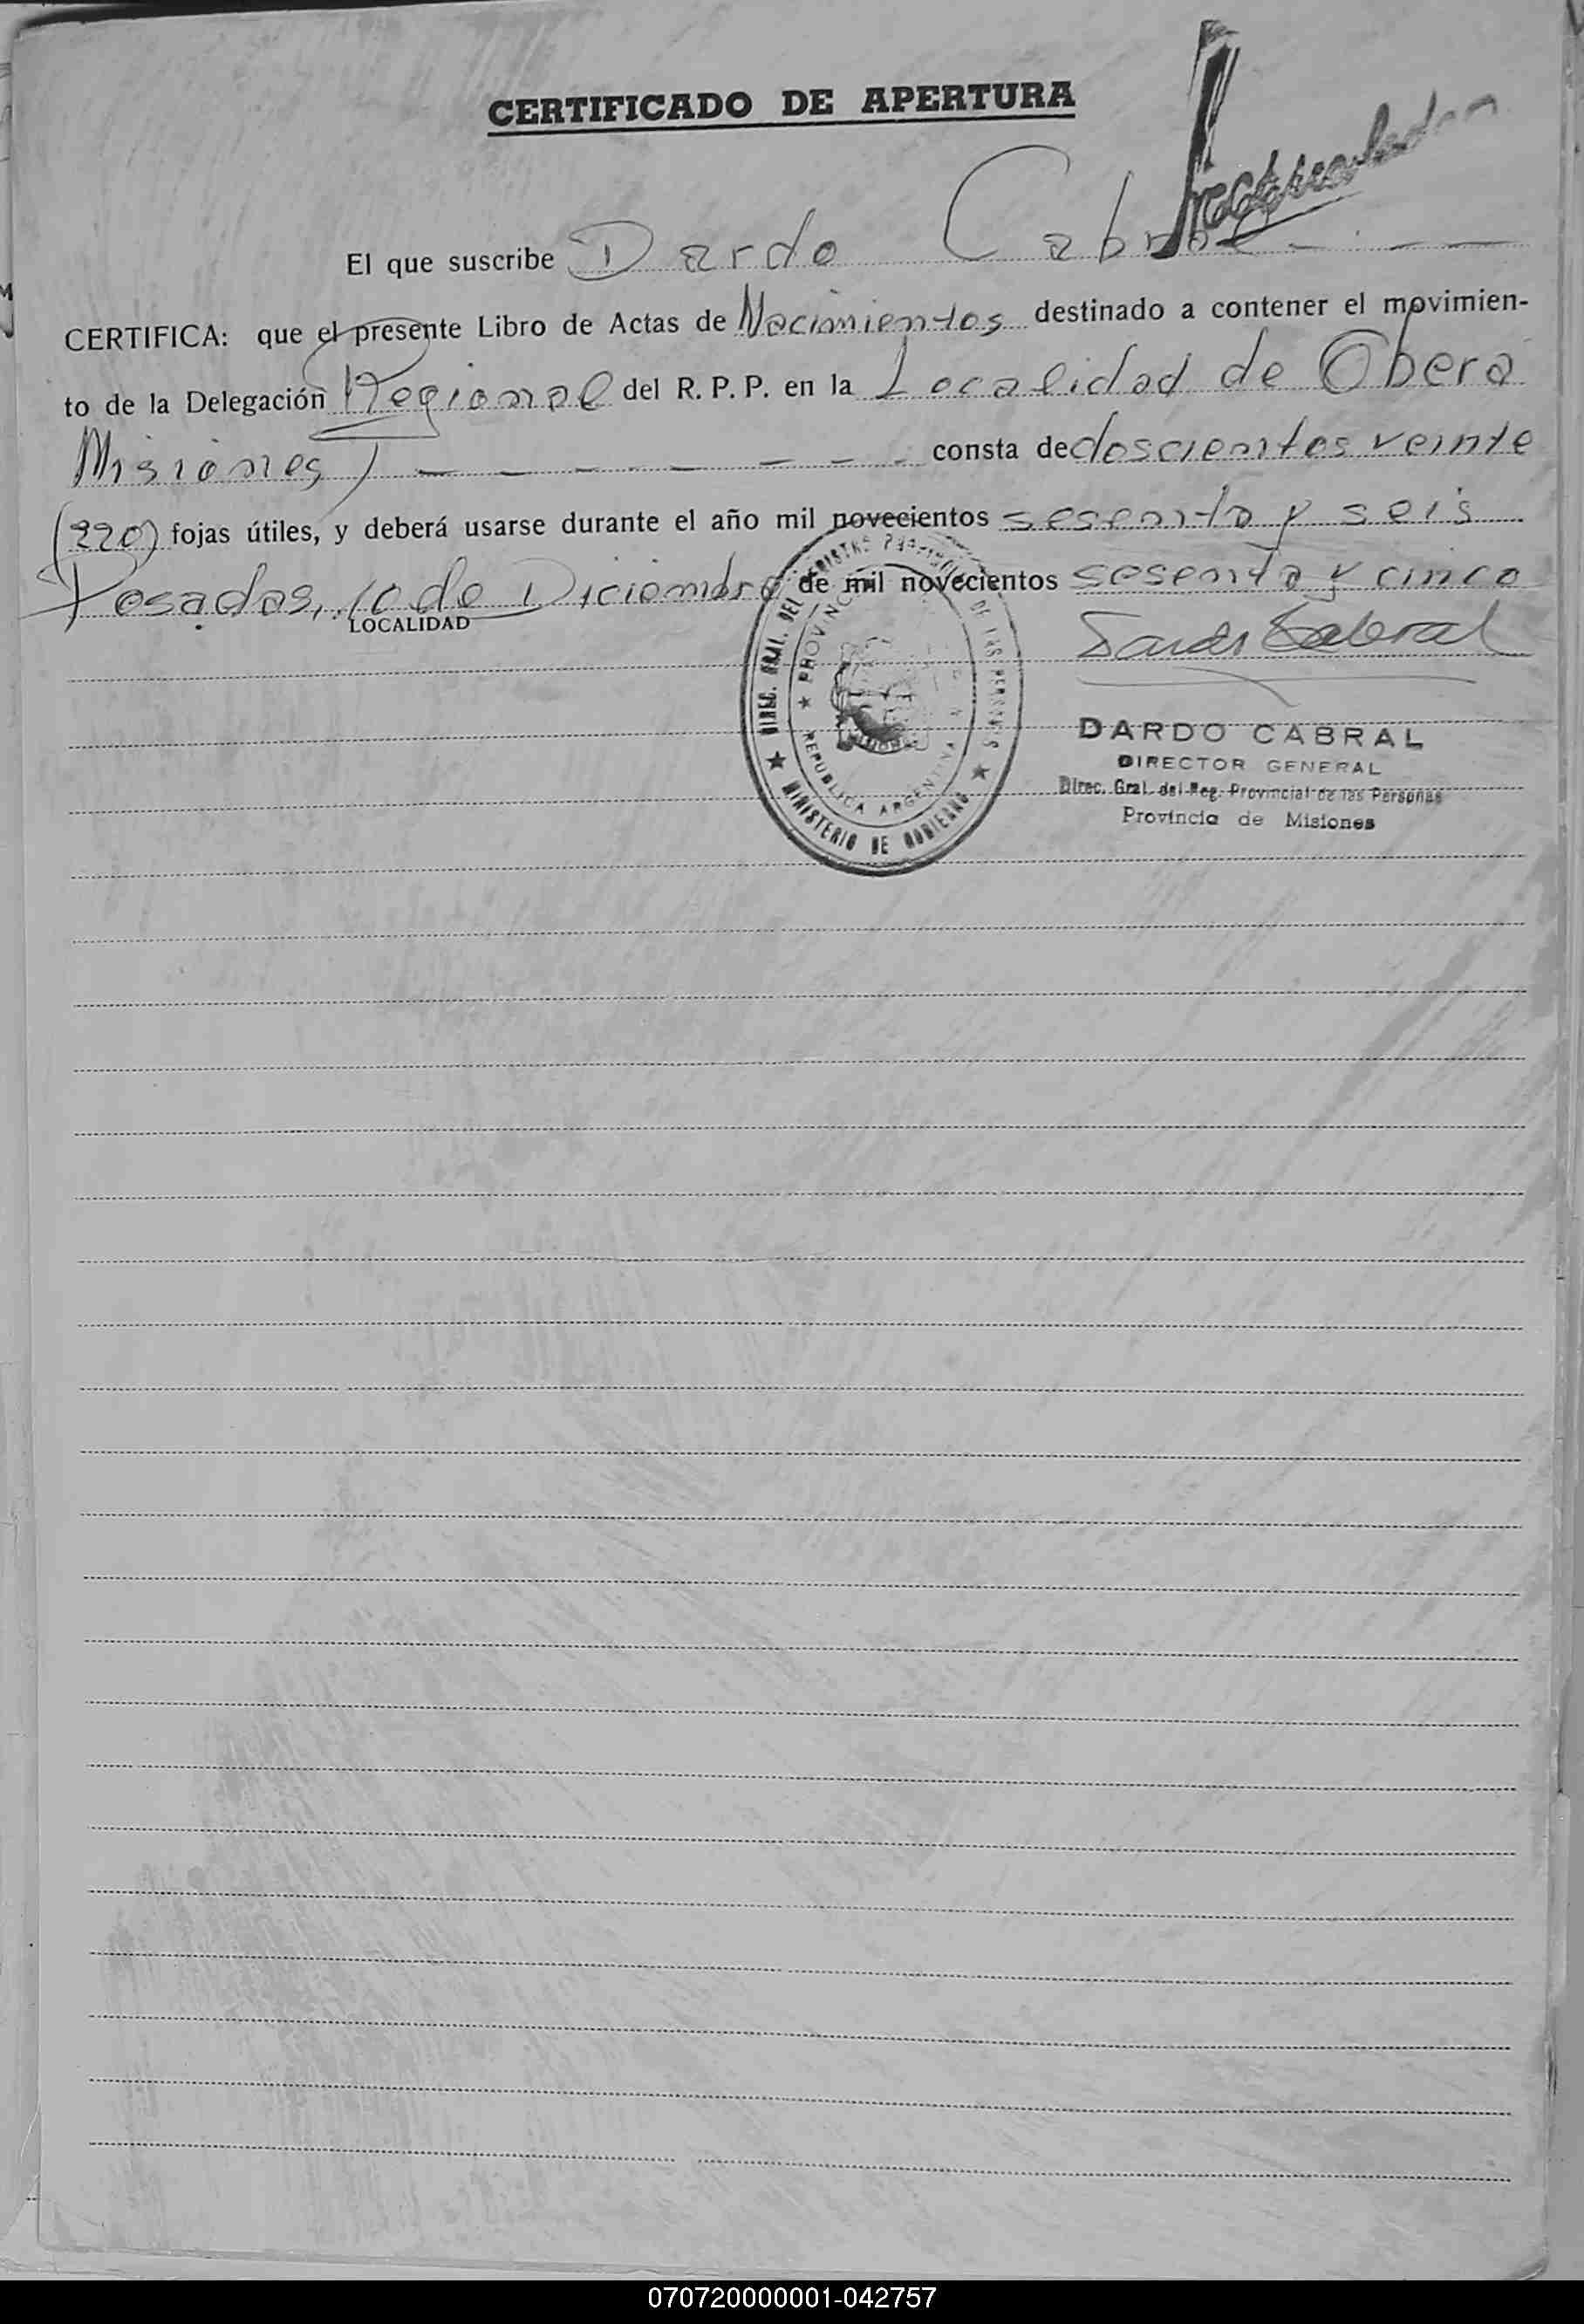 CERTIFICADO DE APERTURA
El que suscribe Dardo Cabral
CERTIFICA: que el presente Libro de Actas de Nacimientos destinado a contener el movimien-
to de la Delegación Regional del R. P. P. en la Localidad de Obera
Misiones) consta de doscientos veinte
(220) fojas útiles, y deberá usarse durante el año mil novecientos sesenta y seis
Posadas, 10 de Diciembre de mil novecientos sesenta y cinco
LOCALIDAD
Dardo Cabral
DIREC. GRAL. DEL REGISTRO PROVINCIAL DE LAS PERSONAS
PROVINCIA
REPUBLICA ARGENTINA
MINISTERIO DE GOBIERNO
DARDO CABRAL
DIRECTOR GENERAL
Direc. Gral. del Reg. Provincial de las Personas
Provincia de Misiones
070720000001-042757